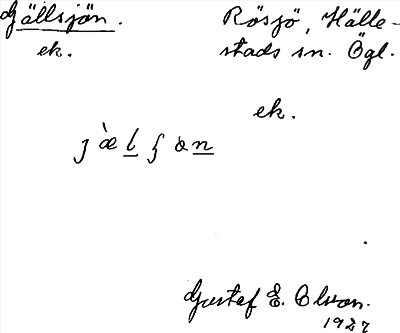 Gällsjön. Rösjö, Hälle-
ek. stads sn. Ögl.
ek.
j æ̀ l ʃ ɷ n
Gustaf E. Olson.
1927